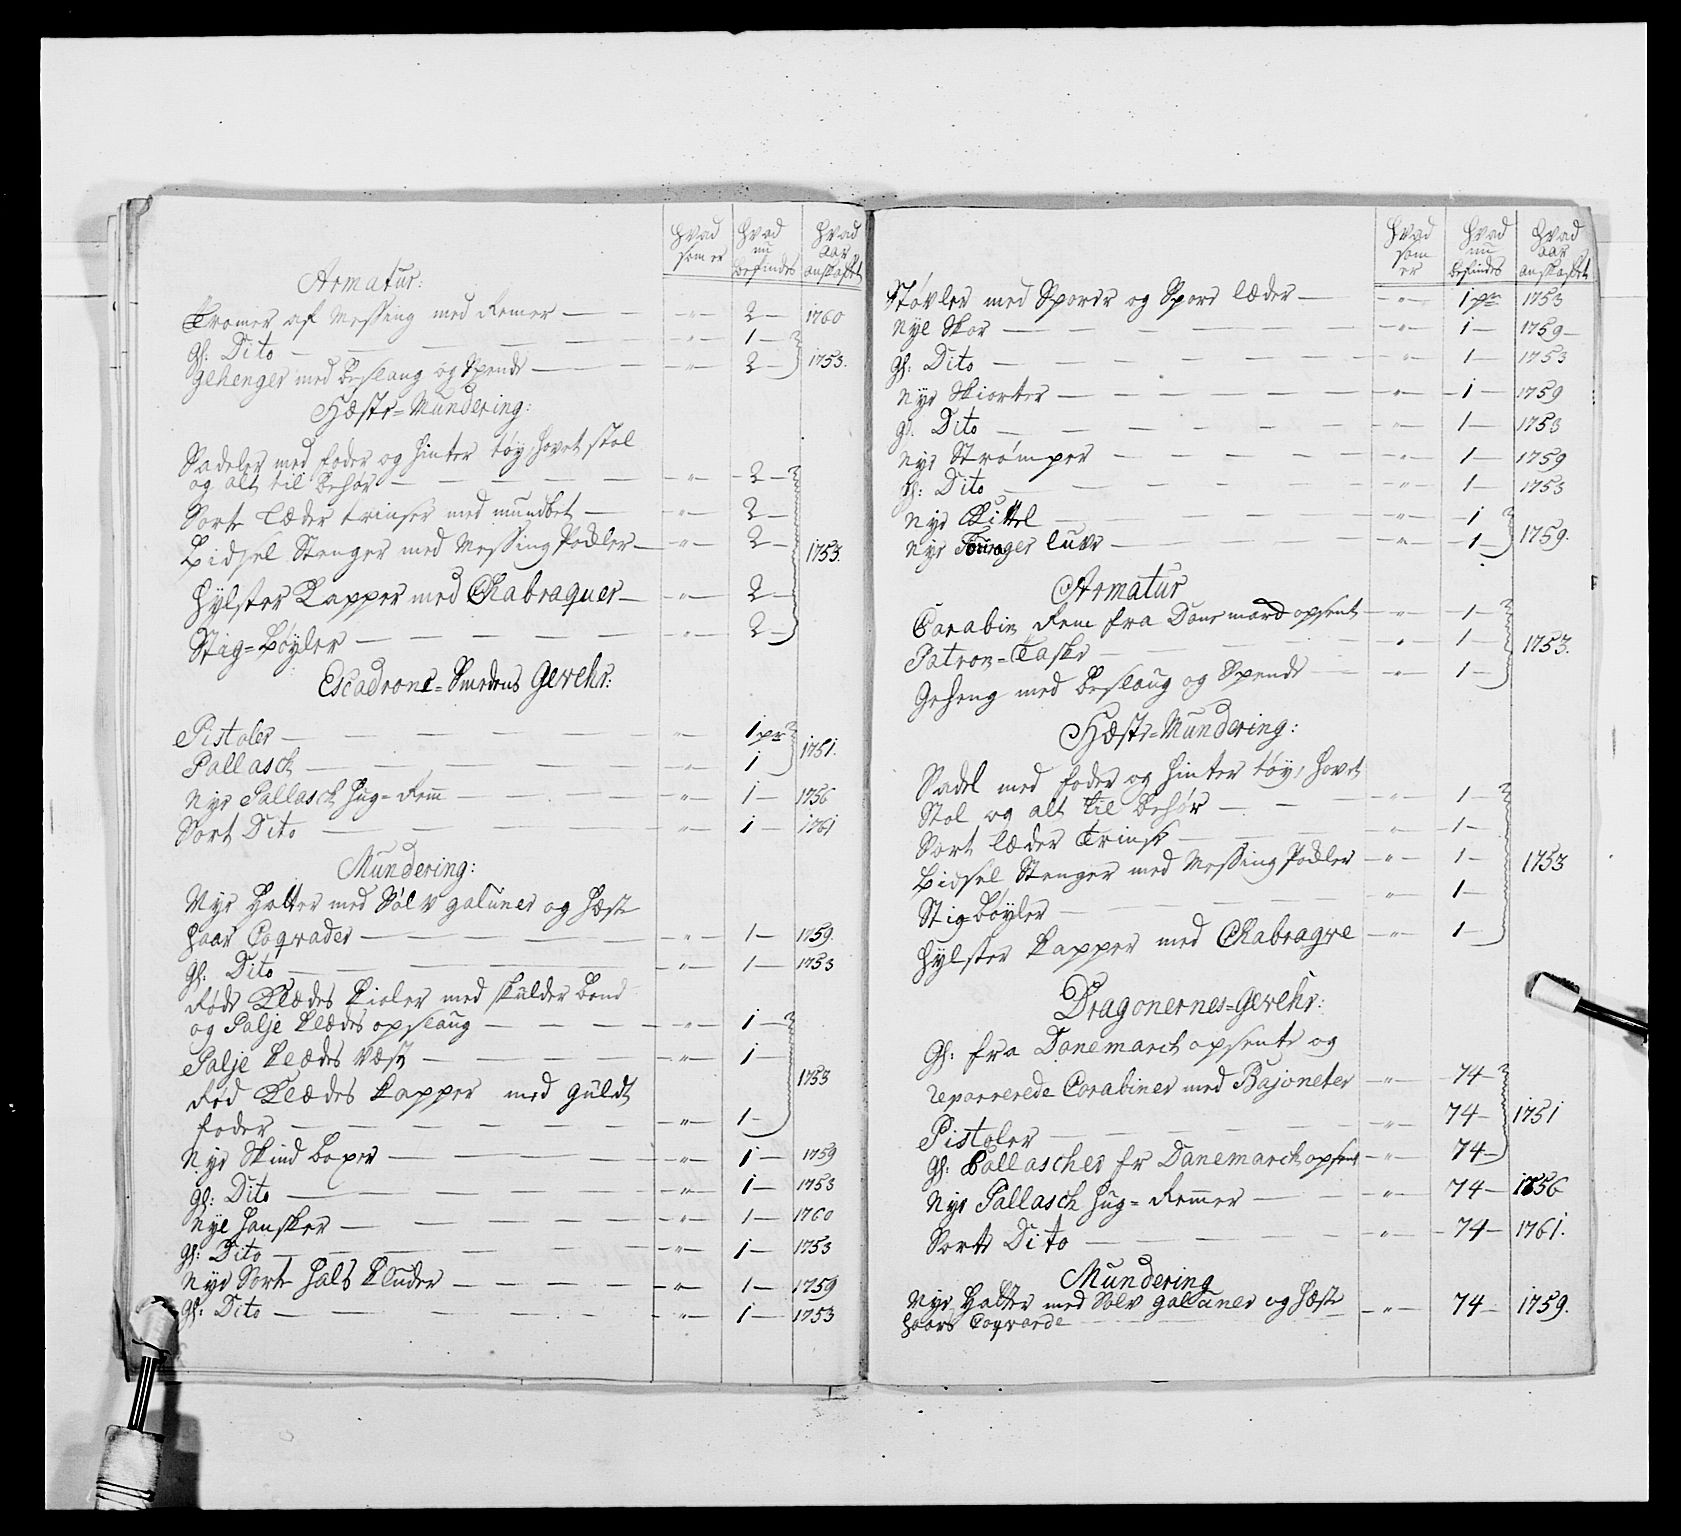 hvad som er | hvad nu befindes | hvad aar anskaffet
Armatur:
Tromer af Messing med Remer — " — 2 — 1760
Gl: Dito — " — 1 —
Gehenger med beslaug og Spende — " — 2 — 1753.
Hæste-Mundering:
Sadeler med foder og hinter tøy hovet stol
og alt til behør — " — 2 —
Sorte Læder trinser med mundbet — " — 2 —
Bidsel Stenger med Messing Podler — " — 2 — 1753.
Hylster Kapper med Chabraquer — " — 2 —
Stig-Bøyler — " — 2 —
Escadrone-Smedens Gevehr:
Pistoler — " — 1 pr
Pallasch — " — 1 1751.
Nye Pallasch Hug-Rem — " — 1 — 1756
Sort Dito — " — 1 — 1761
Mundering:
Nye Hatter med Sølv galuner og Hæste
haar Coqvader — " — 1 — 1759.
Gl: Dito — " — 1 — 1753
Røde Klædes Kioler med skulder bond
og Palje Klædes opslaug — " — 1 —
Palje Klædes Væst — " — 1 — 1753
Rød Klædes Kapper med Guldt
foder — " — 1 —
Nye Skind boxer — " — 1 — 1759
Gl: Dito — " — 1 — 1753
Nye Hansker — " — 1 — 1760
Gl: Dito — " — 1 — 1753
Nye Sorte Hals Kluder — " — 1 — 1759
Gl: Dito — " — 1 — 1753
hvad som er | hvad nu befindes | hvad aar anskaffet
Støvler med Sporer og Spore læder — " — 1 pr 1753
Nye Skoe — " — 1 — 1759
Gl: Dito — " — 1 — 1753
Nye Skiorter — " — 1 — 1759
gl. Dito — " — 1 — 1753
Nye Strømper — " — 1 — 1759
Gl: Dito — " — 1 — 1753
Nye Kittel — " — 1
Nye Fourager luer — " — 1 — 1759.
Armatur
Carabin Rem fra Danemarck opsent — " — 1 —
Patron-Taske — " — 1 — 1753.
Geheng med beslaug og Spende — " — 1 —
Hæste-Mundering:
Sadel med foder og hinter tøy, hovet
Stol og alt til behør — " — 1 —
Sort læder Trinse — " — 1 —
Bidsel Stenger med Messing Podler — " — 1 — 1753
Stig bøyler — " — 1 —
Hylster Kapper med Chabraqve — " — 1 —
Dragonernes-Gevehr:
Gl: fra Danemarck opsente og
reparerede Carabiner med Bajoneter — " — 74 —
Pistoler — " — 74 — 1751
Gl: Pallascher fr Danemarck opsent — " — 74 —
Nye Pallasch Hug-Remer — " — 74 — 1756
Sorte Dito — " — 74 — 1761.
Mundering
Nye Hatter med Sølv galuner og Hæste
haars Coqvarde — " — 74 — 1759.